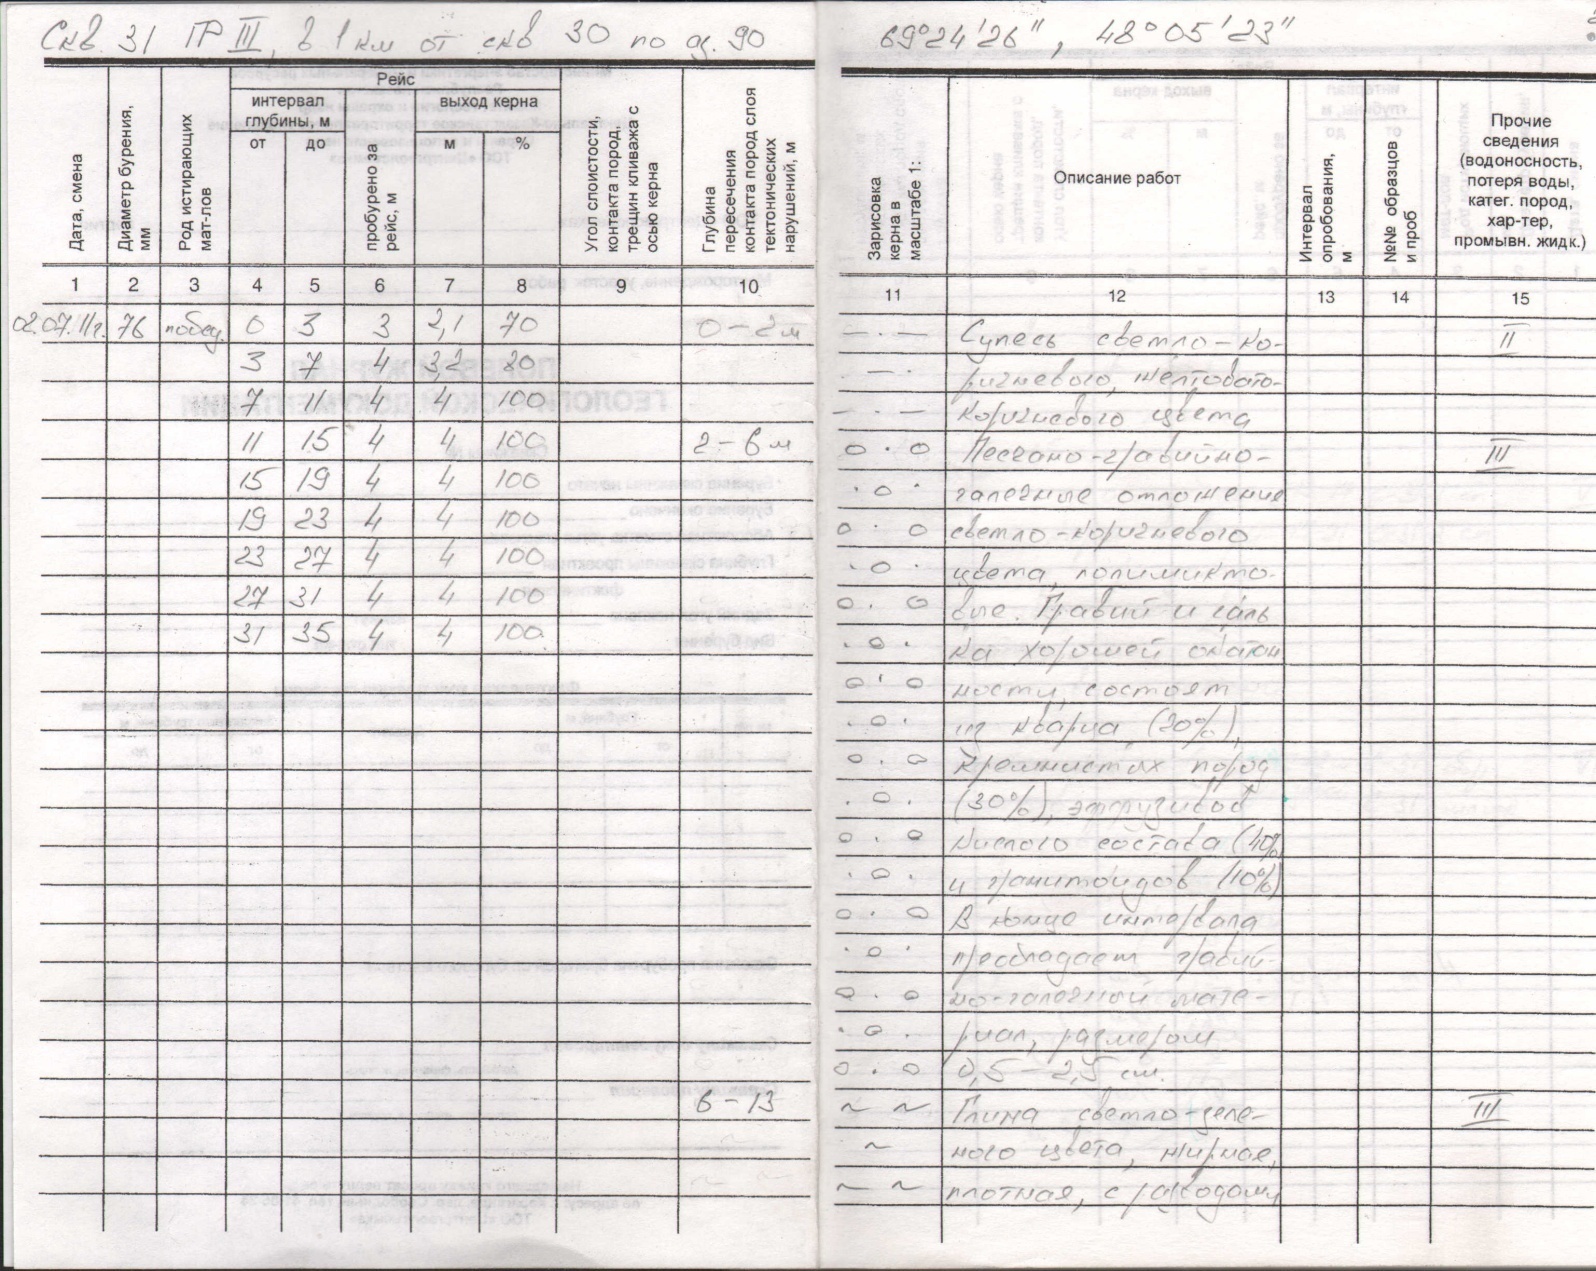 Скв. 31 ПР III, в 1 км от скв 30 по аз. 90
69°24'26", 48°05'23"
Дата, смена
Диаметр бурения, мм
Род истирающих мат-лов
Рейс
интервал глубины, м
от
до
пробурено за рейс, м
выход керна
м
%
Угол слоистости, контакта пород, трещин кливажа с осью керна
Глубина пересечения контакта пород слоя тектонических нарушений, м
Зарисовка керна в масштабе 1:
Описание работ
Интервал опробования, м
№№ образцов и проб
Прочие
сведения
(водоносность,
потеря воды,
катег. пород,
хар-тер,
промывн. жидк.)
1 2 3 4 5 6 7 8 9 10 11 12 13 14 15
02.07.11г. 76 побед. 0 3 3 2,1 70 0-2м
3 7 4 3,2 80
7 11 4 4 100
11 15 4 4 100 2-6м
15 19 4 4 100
19 23 4 4 100
23 27 4 4 100
27 31 4 4 100
31 35 4 4 100
6-13
Супесь светло-ко- II
ричневого, желтовато-
коричневого цвета
Песчано-гравийно- III
галечные отложение
светло-коричневого
цвета, полимикто-
вые. Гравий и галь
ка хорошей окатан
ности, состоят
из кварца (20%),
кремнистых пород
(30%), эффузивов
кислого состава (40%
и гранитоидов (10%)
В конце интервала
преобладает гравий-
но-галечный мате-
риал, размером
0,5-2,5 см.
Глина светло-зеле- III
ного цвета, жирная,
плотная, с разводами